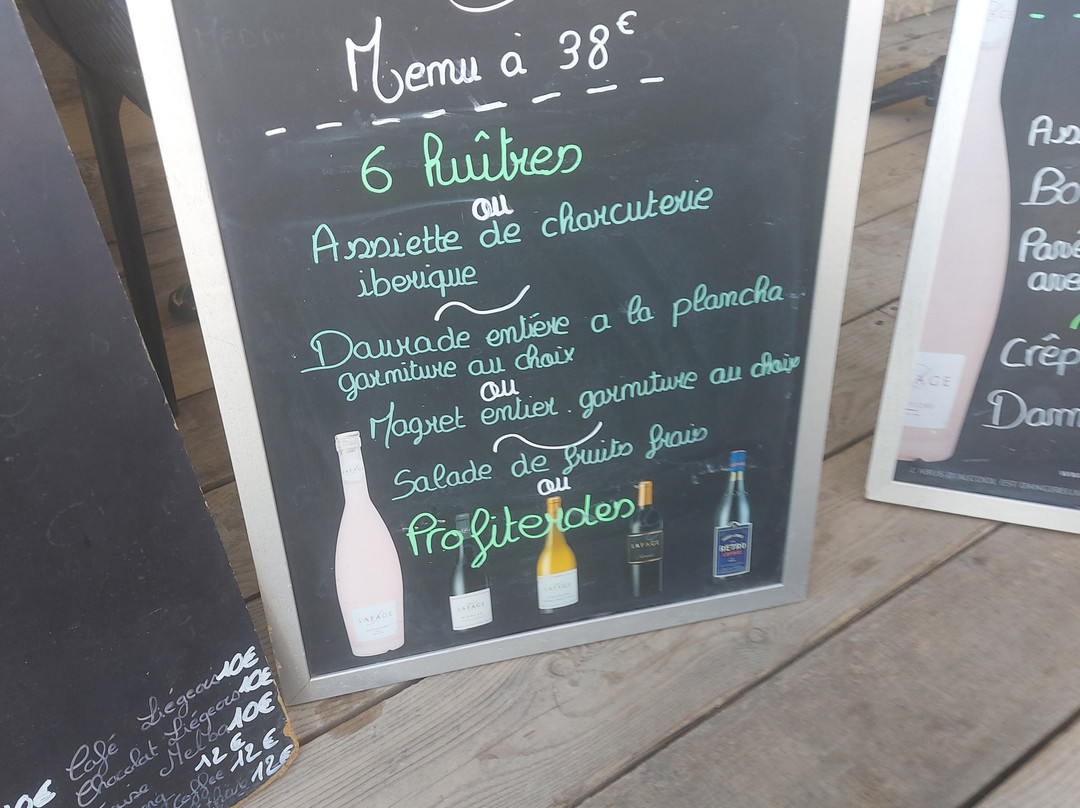 Menu à 38€
6 huîtres
ou
Assiette de charcuterie
iberique
Daurade entière a la plancha
garniture au choix
ou
Magret entier. garniture au choix
Salade de fruits frais
ou
Profiteroles
LAFAGE
LAFAGE
LAFAGE
LAFAGE
RETRO
Café Liégeois 10€
Chocolat Liégeois 10€
Melba 10€
12€
Coffee 12€
12€
Crêp
Dam